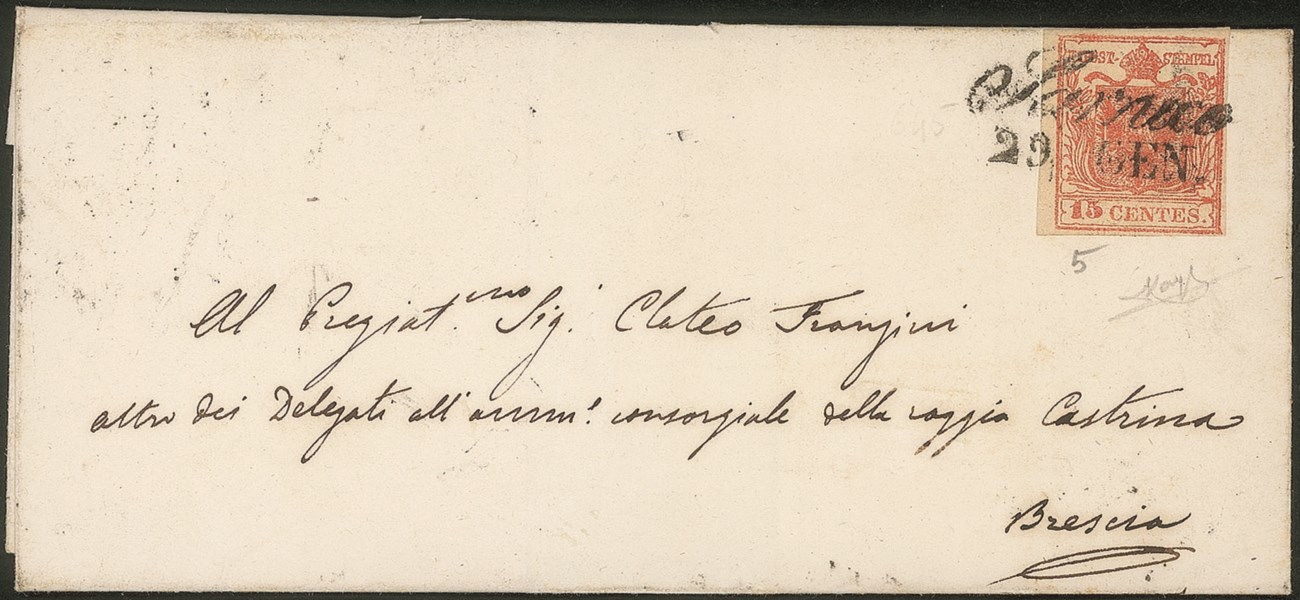 POST-STEMPEL
Sarnico
29 GEN.
15 CENTES.
5
Al Pregiat.mo Sig. Clateo Franzini
altro dei Delegati all' amm. consorziale della roggia Castrina
Brescia